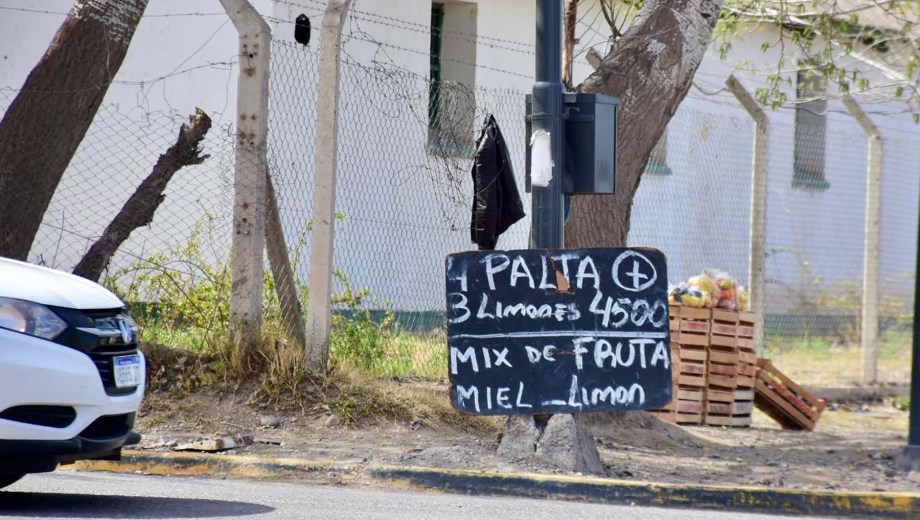 4 PALTA ⊕
3 LIMONES 4500
MIX DE FRUTA
MIEL - LIMON